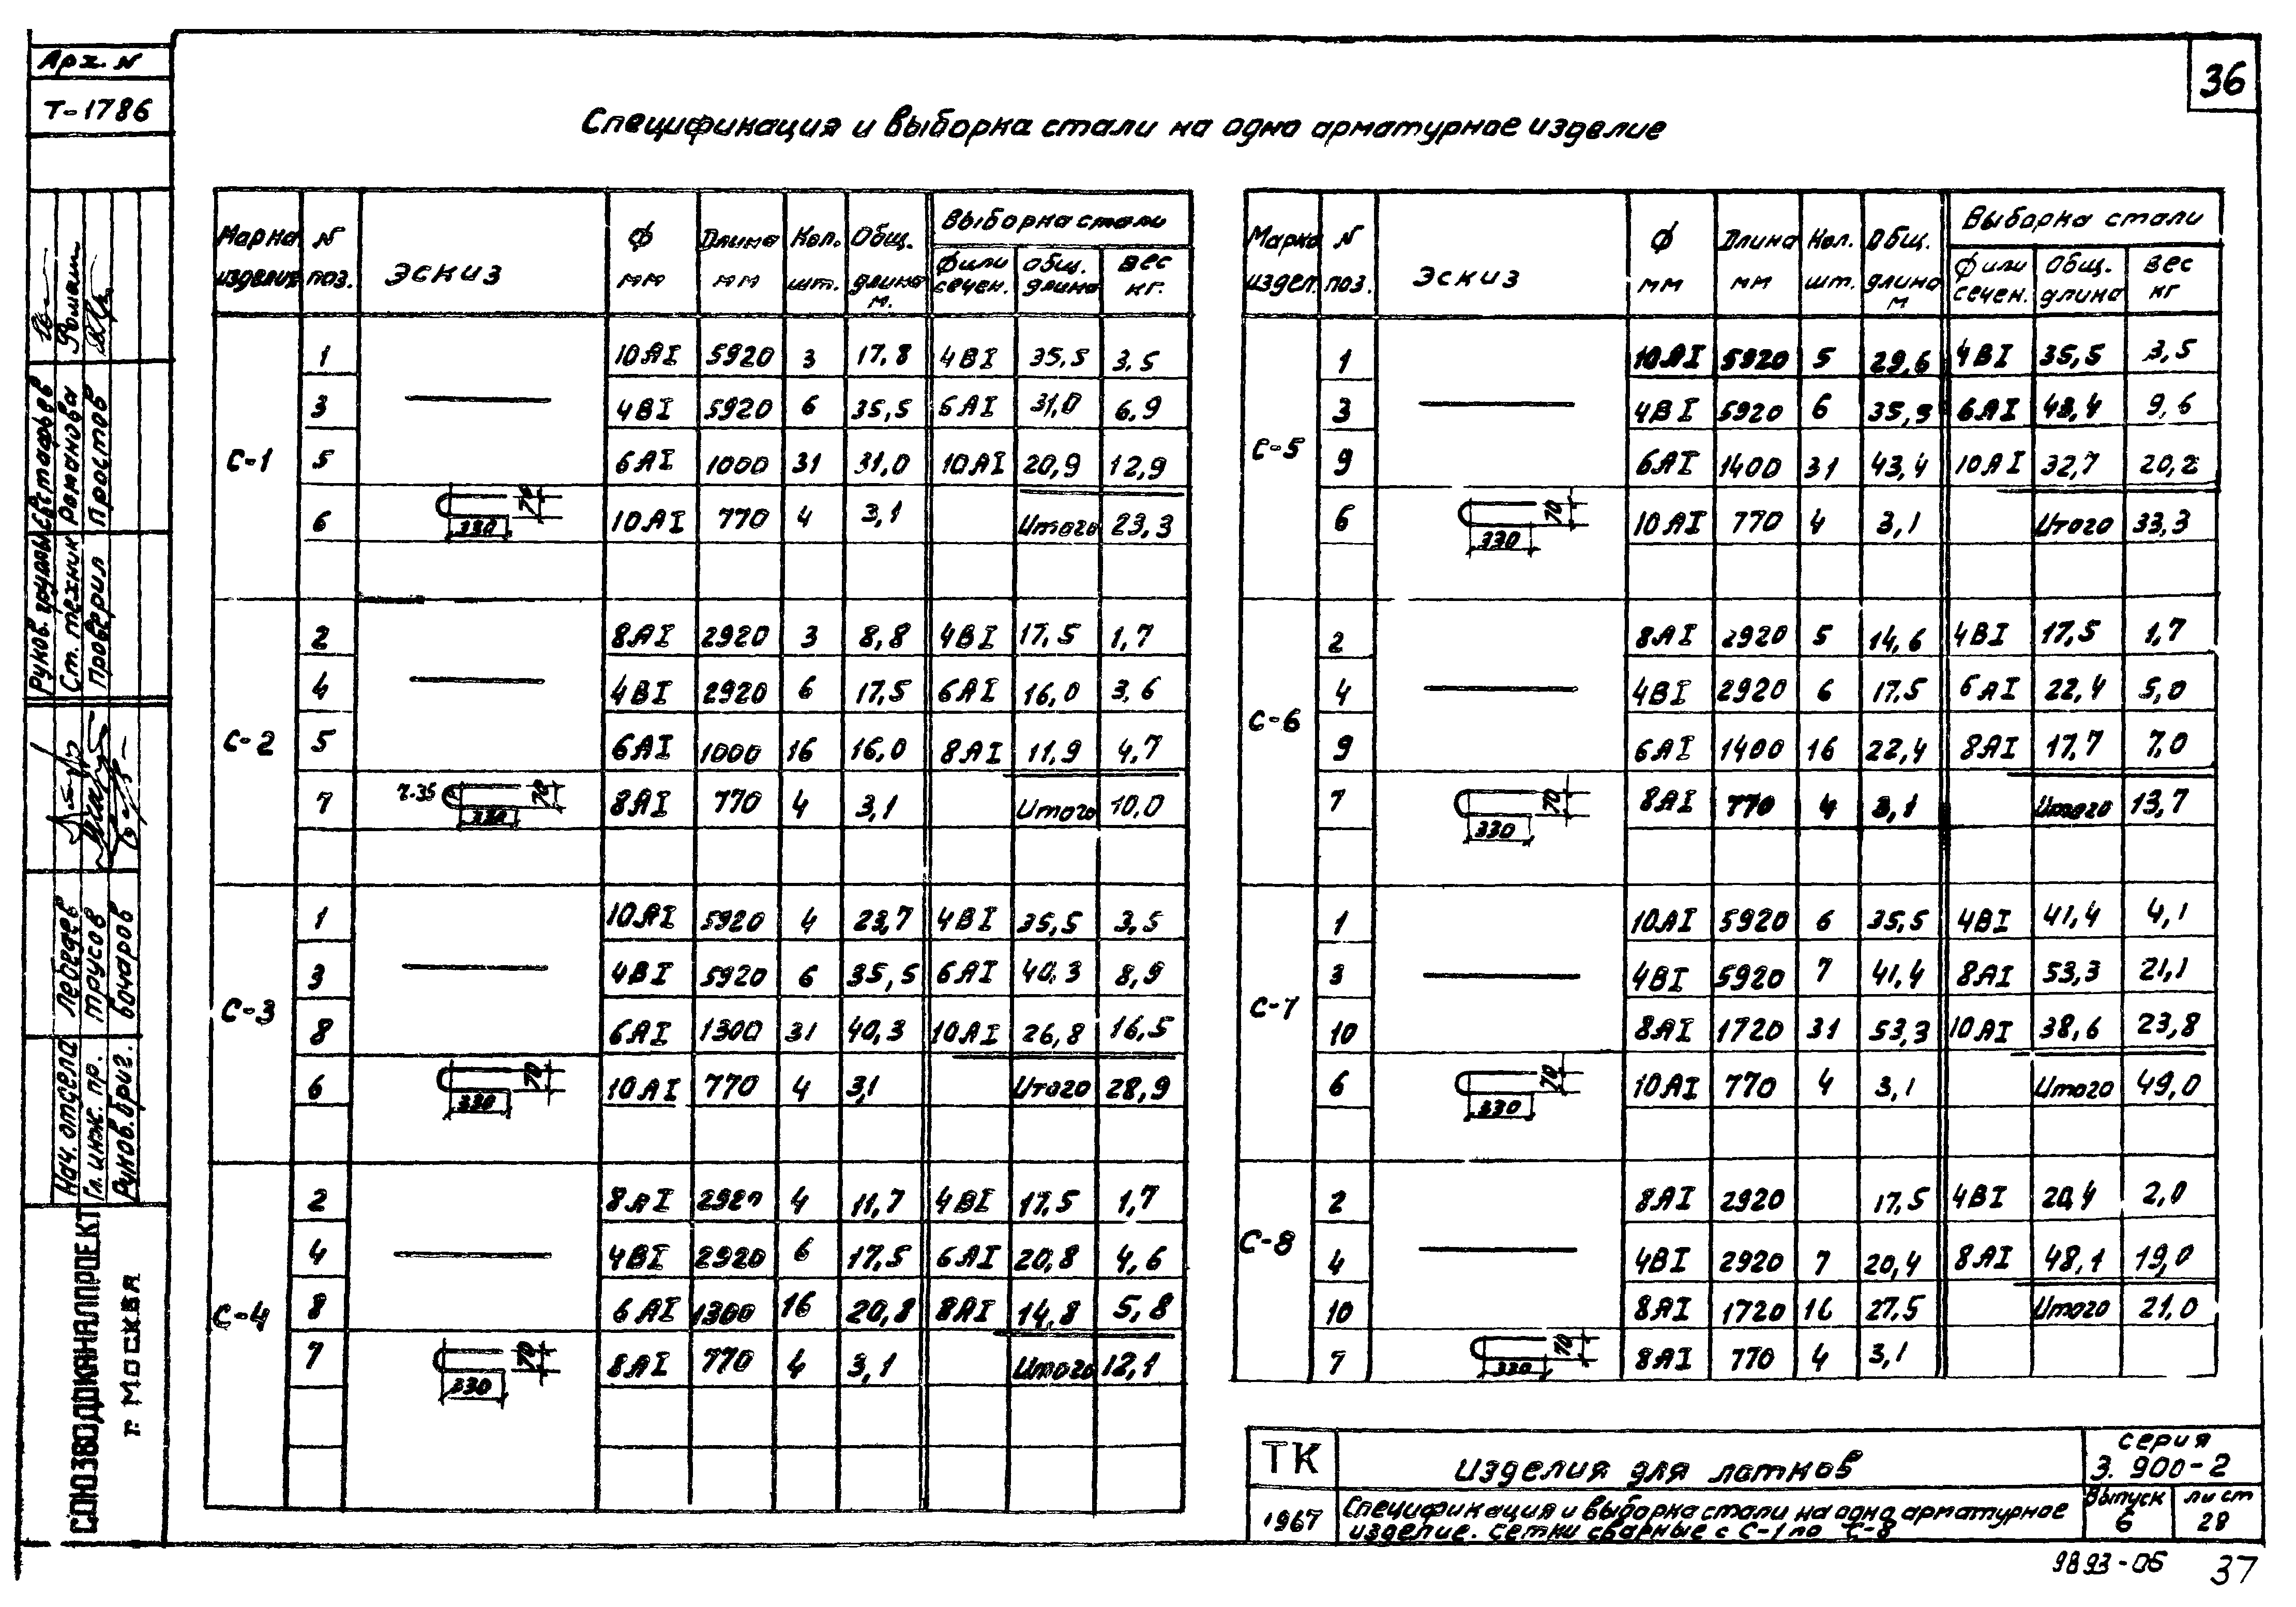 Арх. N
Т-1786
36
Спецификация и выборка стали на одно арматурное изделие
Марка изделия | N поз. | Эскиз | Ф мм | Длина мм | Кол. шт. | Общ. длина м. | Выборка стали
Ф или сечен. | Общ. длина | Вес кг.
С-1
1 | 10АI | 5920 | 3 | 17,8 | 4ВI | 35,5 | 3,5
3 | 4ВI | 5920 | 6 | 35,5 | 6АI | 31,0 | 6,9
5 | 6АI | 1000 | 31 | 31,0 | 10АI | 20,9 | 12,9
6 | 330 | 70 | 10АI | 770 | 4 | 3,1 | Итого | 23,3
С-2
2 | 8АI | 2920 | 3 | 8,8 | 4ВI | 17,5 | 1,7
4 | 4ВI | 2920 | 6 | 17,5 | 6АI | 16,0 | 3,6
5 | 6АI | 1000 | 16 | 16,0 | 8АI | 11,9 | 4,7
7 | 2.35 | 330 | 70 | 8АI | 770 | 4 | 3,1 | Итого | 10,0
С-3
1 | 10АI | 5920 | 4 | 23,7 | 4ВI | 35,5 | 3,5
3 | 4ВI | 5920 | 6 | 35,5 | 6АI | 40,3 | 8,9
8 | 6АI | 1300 | 31 | 40,3 | 10АI | 26,8 | 16,5
6 | 330 | 70 | 10АI | 770 | 4 | 3,1 | Итого | 28,9
С-4
2 | 8АI | 2920 | 4 | 11,7 | 4ВI | 17,5 | 1,7
4 | 4ВI | 2920 | 6 | 17,5 | 6АI | 20,8 | 4,6
8 | 6АI | 1300 | 16 | 20,8 | 8АI | 14,8 | 5,8
7 | 330 | 70 | 8АI | 770 | 4 | 3,1 | Итого | 12,1
Марка издел. | N поз. | Эскиз | Ф мм | Длина мм | Кол. шт. | Общ. длина м | Выборка стали
Ф или сечен. | Общ. длина | Вес кг
С-5
1 | 10АI | 5920 | 5 | 29,6 | 4ВI | 35,5 | 3,5
3 | 4ВI | 5920 | 6 | 35,5 | 6АI | 43,4 | 9,6
9 | 6АI | 1400 | 31 | 43,4 | 10АI | 32,7 | 20,2
6 | 330 | 70 | 10АI | 770 | 4 | 3,1 | Итого | 33,3
С-6
2 | 8АI | 2920 | 5 | 14,6 | 4ВI | 17,5 | 1,7
4 | 4ВI | 2920 | 6 | 17,5 | 6АI | 22,4 | 5,0
9 | 6АI | 1400 | 16 | 22,4 | 8АI | 17,7 | 7,0
7 | 330 | 70 | 8АI | 770 | 4 | 3,1 | Итого | 13,7
С-7
1 | 10АI | 5920 | 6 | 35,5 | 4ВI | 41,4 | 4,1
3 | 4ВI | 5920 | 7 | 41,4 | 8АI | 53,3 | 21,1
10 | 8АI | 1720 | 31 | 53,3 | 10АI | 38,6 | 23,8
6 | 330 | 70 | 10АI | 770 | 4 | 3,1 | Итого | 49,0
С-8
2 | 8АI | 2920 | 17,5 | 4ВI | 20,4 | 2,0
4 | 4ВI | 2920 | 7 | 20,4 | 8АI | 48,1 | 19,0
10 | 8АI | 1720 | 16 | 27,5 | Итого | 21,0
7 | 330 | 70 | 8АI | 770 | 4 | 3,1
Руков. группы Евстафьев
Ст. техник Романова
Проверил Простов
Нач. отдела Лебедев
Гл. инж. пр. Трусов
Руков. бриг. Бочаров
СОЮЗВОДОКАНАЛПРОЕКТ
г. Москва
ТК
1967
Изделия для лотков
Спецификация и выборка стали на одно арматурное
изделие. Сетки сварные с С-1 по С-8
серия
3.900-2
Выпуск 6
лист 28
9893-06 37